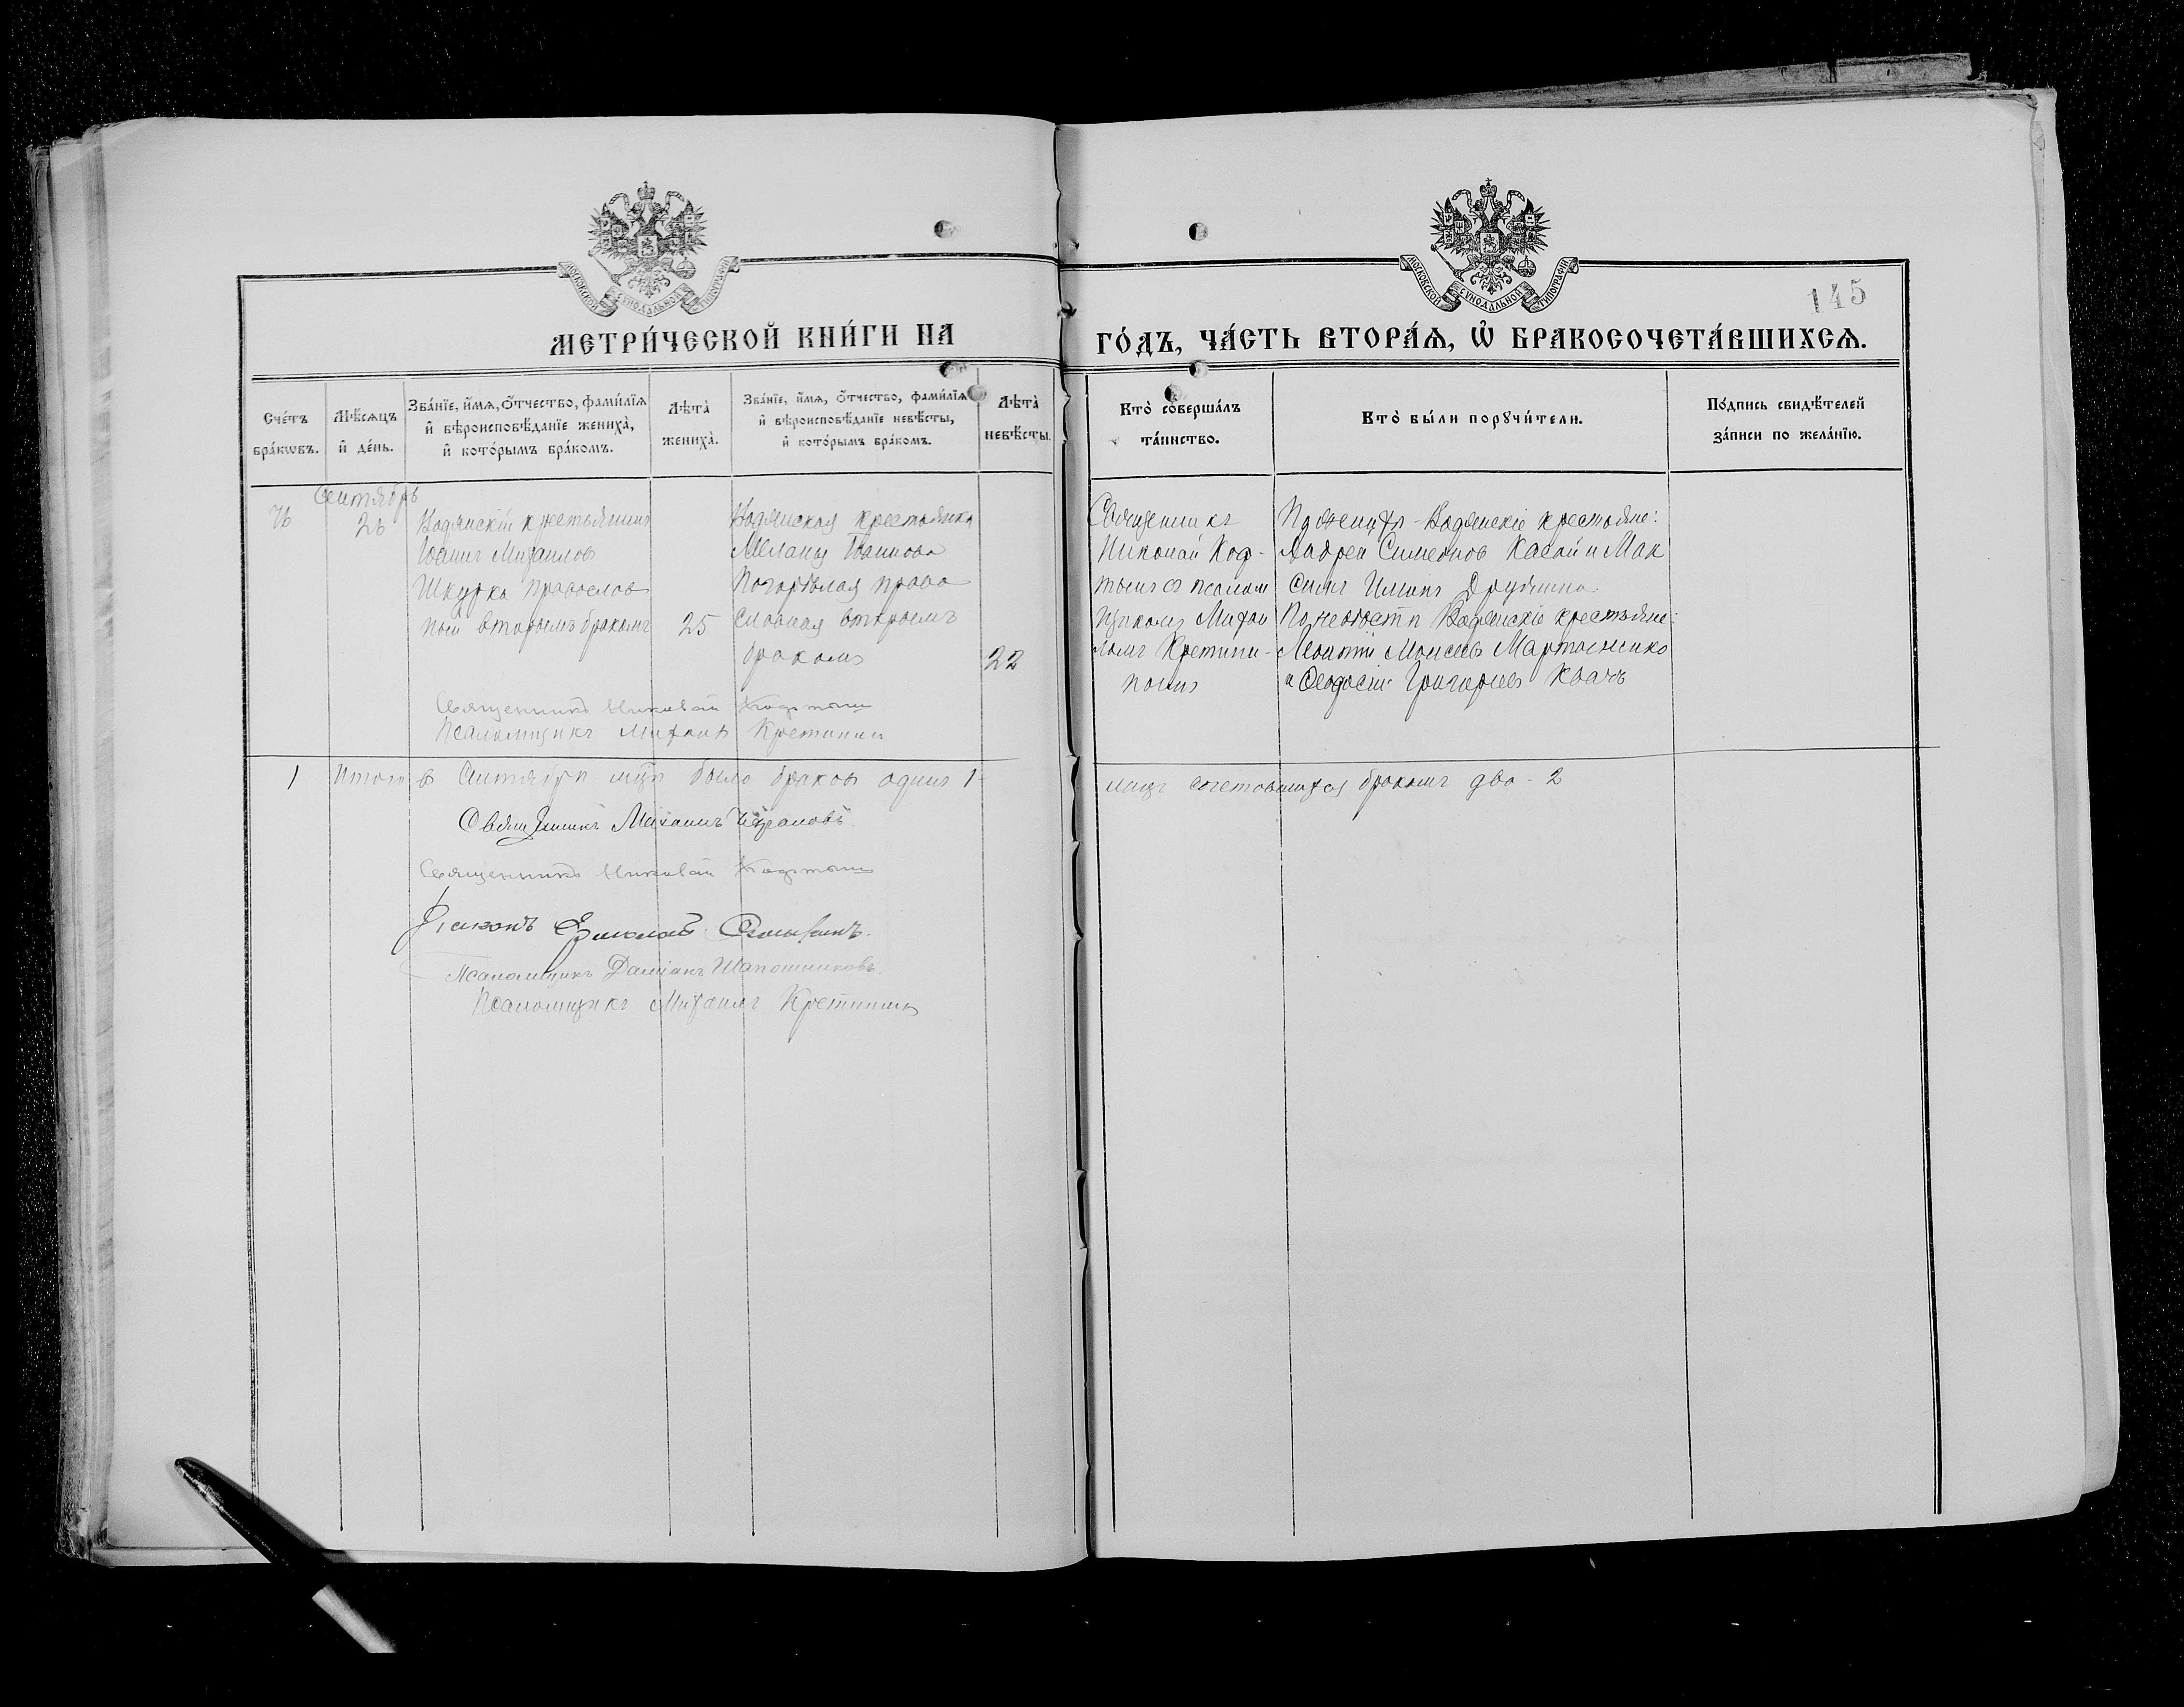 МОСКОВСКОЙ СУНОДАЛЬНОЙ ТИПОГРАФІИ
МОСКОВСКОЙ СУНОДАЛЬНОЙ ТИПОГРАФІИ
145
МЕТРИ́ЧЕСКОЙ КНИ́ГИ НА
ГО́ДЪ, ЧА́СТЬ ВТОРА́Я, Ѡ҆ БРАКОСОЧЕТА́ВШИХСЯ.
Сче́тъ бра́кѡвъ.
Мѣ́сяцъ и҆ де́нь.
Зва́нїе, и҆́мя, ѻ҆́тчество, фами́лїя
и҆ вѣроисповѣ́данїе жениха̀,
и҆ кото́рымъ бра́комъ.
Лѣта̀ жениха̀.
Зва́нїе, и҆́мя, ѻ҆́тчество, фами́лїя
и҆ вѣроисповѣ́данїе невѣ́сты,
и҆ кото́рымъ бра́комъ.
Лѣта̀ невѣ́сты.
Кто̀ соверша́лъ та́инство.
Кто̀ бы́ли порꙋчи́тели.
По́дпись свидѣ́телей
за́писи по жела́нїю.
Сентябрь
26
Водянскій крестьянинъ
Іоаннъ Михаиловъ
Шкурка православ
ный вторымъ бракомъ
25
Водянская крестьянка
Меланія Іоаннова
Погорѣлая право
славная вторымъ
бракомъ
22
Священникъ
Николай
съ псалом
щикомъ Михаи
ломъ Кретини-
нымъ
По женихѣ - Водянскіе крестьяне:
Андрей Симеоновъ Касай и Мак
симъ
По невѣстѣ Водянскіе крестьяне:
Леонтій Моисеевъ Мартыненко
и Ѳеодосій Григорьевъ Квачъ
Священникъ Николай
Псаломщикъ Михаилъ Кретининъ
1
Итого въ Сентябрѣ мцѣ было браковъ одинъ 1
лицъ сочетавшихся бракомъ два - 2
Священникъ Михаилъ
Священникъ Николай
Діаконъ
Псаломщикъ Даміанъ Шапошниковъ
Псаломщикъ Михаилъ Кретининъ